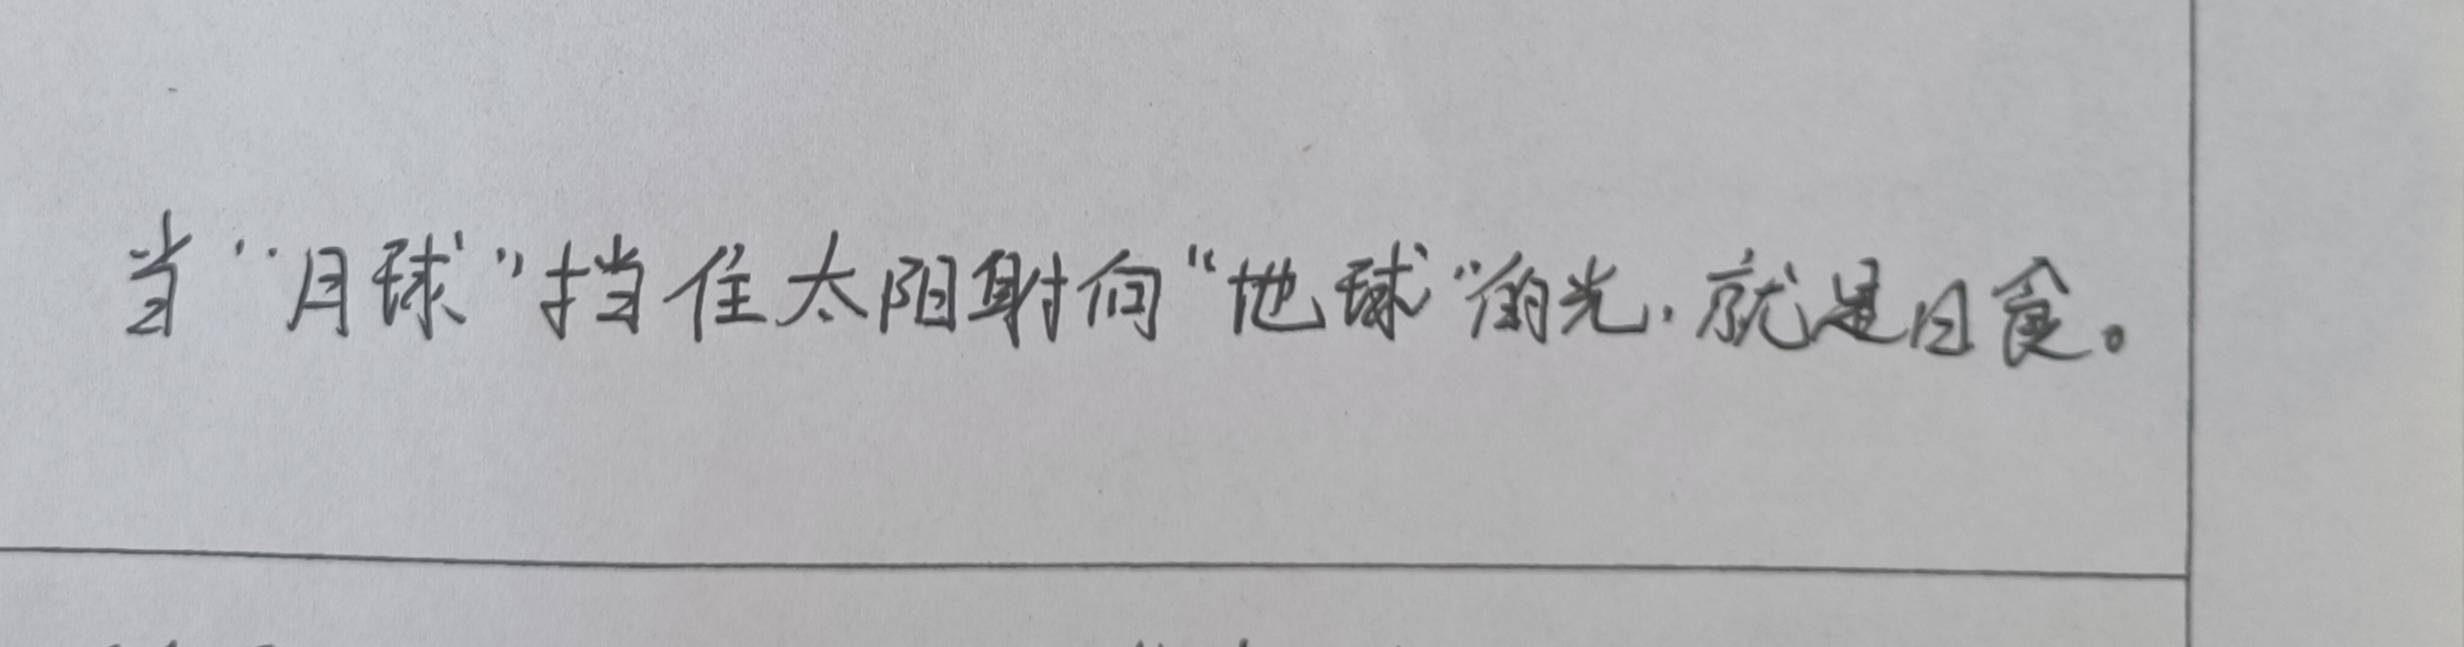 当“月球”挡住太阳射向“地球”的光，就是日食。